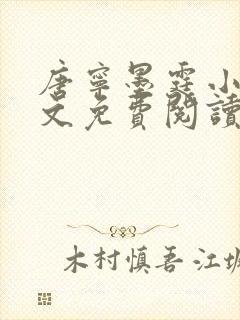 唐寧墨霆小
文免費閱讀
木村慎吾 江城